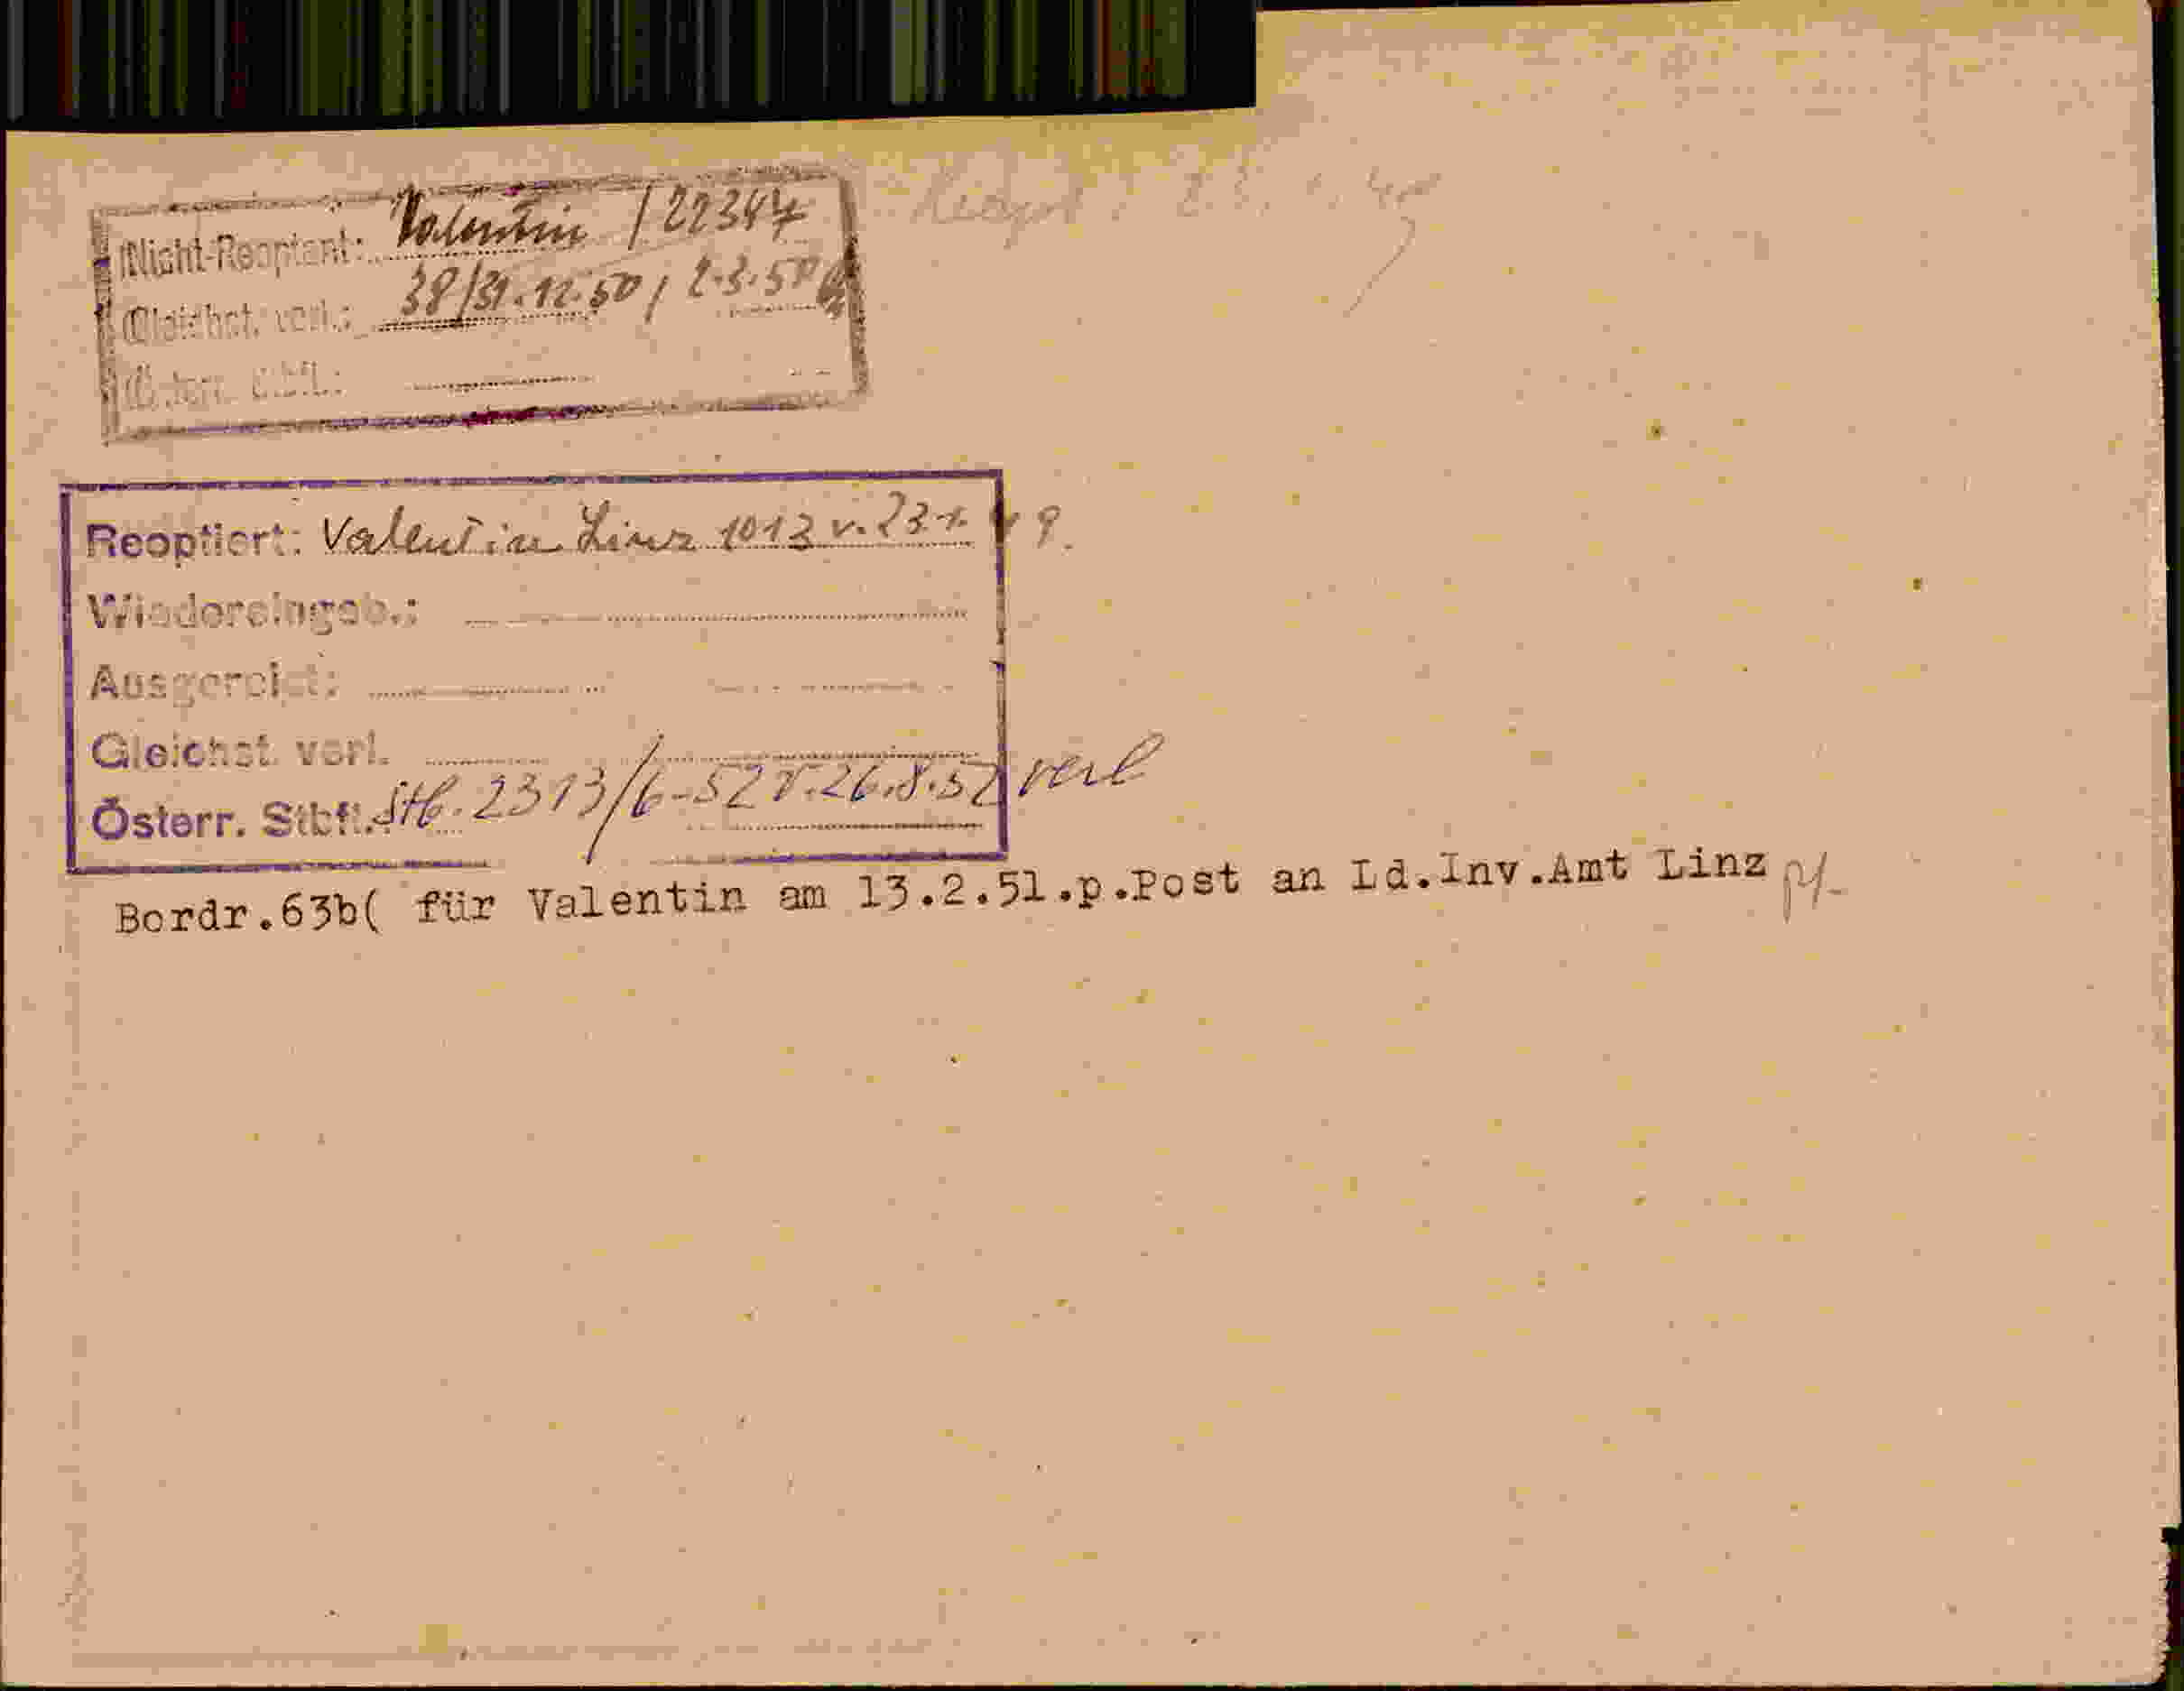 Nicht-Reoptant: Valentin / 22347
Gleichst. verl.: 38/31.12.50 / 2.3.50
Österr. Stbft.:
Reoptiert: Valentin Linz 1013 v. 23.1.49.
Wiedereingeb.:
Ausgereist:
Gleichst. verl.
Österr. Stbft.: Stb. 2313/6-52 v. 26.8.52 verl
Bordr.63b( für Valentin am 13.2.51.p.Post an Ld.Inv.Amt Linz